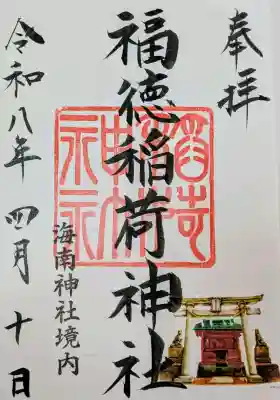 奉拝
福徳稲荷神社
海南神社境内
令和八年四月十日